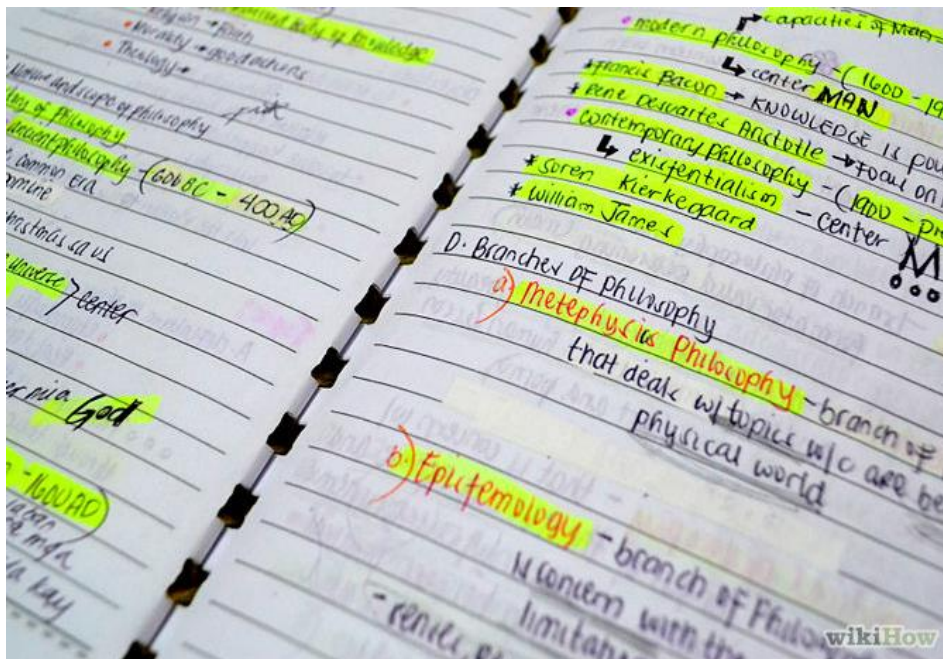 Body of Knowledge
→ Faith
Morality → good actions
Theology →
Nature and scope of philosophy
of philosophy
ancient philosophy (600 BC - 400 AD)
common Era
christmas sa us
universe > center
God
- 1600 AD)
mga
kay
capacities of Man
modern philosophy - (1600 - 19
↳ center MAN
* Francis Bacon → KNOWLEDGE is pow
* Rene Descartes Aristotle → Focus on
contemporary philosophy - (1900 - Pr
↳ existentialism - center
* Soren Kierkegaard
* William James
D. Branches of philosophy
a) Metephysics Philosophy - branch of
that deals w/ topics w/c are be
physical world
b) Epistemology - branch of Philo
concern with the
limitat
wikiHow